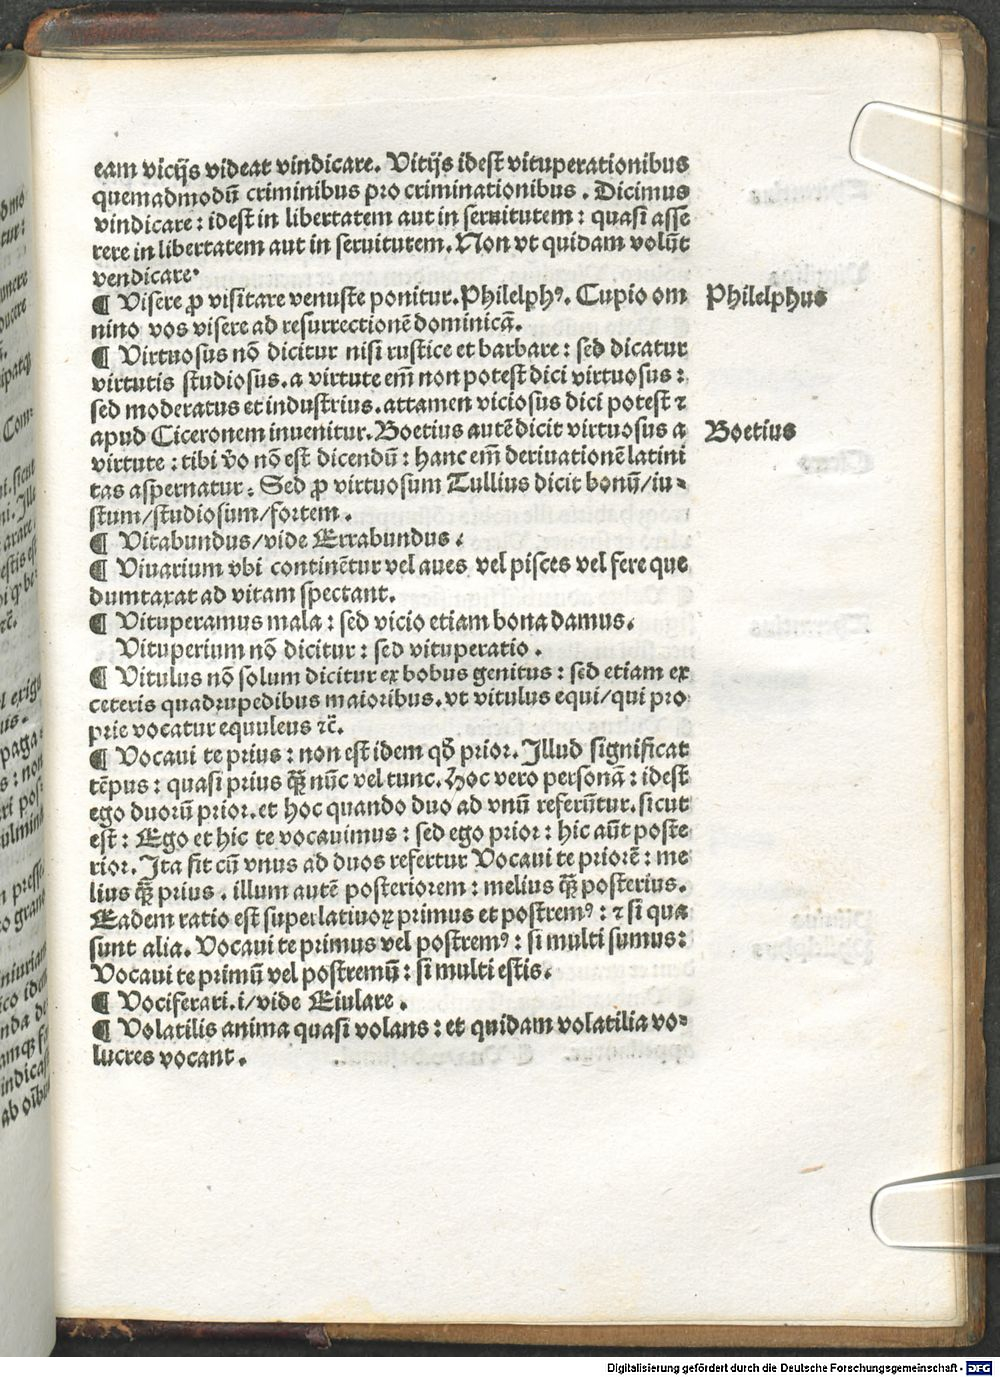 eam vicijs videat vindicare. Vitijs idest vituperationibus
quemadmodū criminibus pro criminationibus. Dicimus
vindicare: idest in libertatem aut in seruitutem: quasi asse
rere in libertatem aut in seruitutem. Non vt quidam volūt
vendicare.
¶ Visere ꝓ visitare venuste ponitur. Philelphꝰ. Cupio om
nino vos visere ad resurrectionē dominicā.
Philelphus
¶ Virtuosus nō dicitur nisi rustice et barbare: sed dicatur
virtutis studiosus. a virtute em̄ non potest dici virtuosus:
sed moderatus et industrius. attamen viciosus dici potest ⁊
apud Ciceronem inuenitur. Boetius autē dicit virtuosus a
Boetius
virtute: tibi v̄o nō est dicendū: hanc em̄ deriuationē latini
tas aspernatur. Sed ꝓ virtuosum Tullius dicit bonū/iu-
stum/studiosum/fortem.
¶ Vitabundus/vide Errabundus.
¶ Viuarium vbi continētur vel aues vel pisces vel fere que
dumtaxat ad vitam spectant.
¶ Vituperamus mala: sed vicio etiam bona damus.
Vituperium nō dicitur: sed vituperatio.
¶ Vitulus nō solum dicitur ex bobus genitus: sed etiam ex
ceteris quadrupedibus maioribus. vt vitulus equi/qui pro
prie vocatur equuleus ⁊c̄.
¶ Vocaui te prius: non est idem qđ prior. Illud significat
tēpus: quasi prius q̄ꝫ nūc vel tunc. Hoc vero personā: idest
ego duorū prior. et hoc quando duo ad vnū referūtur. sicut
est: Ego et hic te vocauimus: sed ego prior: hic aūt poste
rior. Ita fit cū vnus ad duos refertur Vocaui te priorē: me
lius q̄ꝫ prius. illum autē posteriorem: melius q̄ꝫ posterius.
Eadem ratio est superlatiuoꝝ primus et postremꝰ: ⁊ si qua
sunt alia. Vocaui te primus vel postremꝰ: si multi sumus:
Vocaui te primū vel postremū: si multi estis.
¶ Vociferari.i/vide Eiulare.
¶ Volatilis anima quasi volans: et quidam volatilia vo-
lucres vocant.
Digitalisierung gefördert durch die Deutsche Forschungsgemeinschaft - DFG